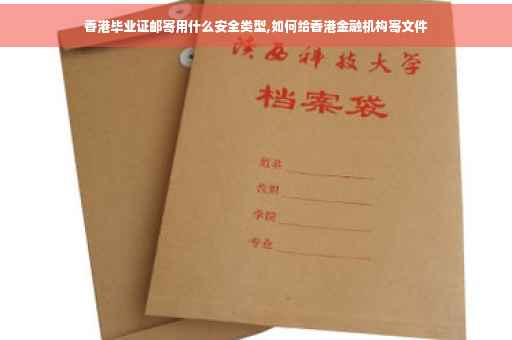 香港毕业证邮寄用什么安全类型,如何给香港金融机构寄文件
陕西科技大学
档案袋
姓名
学院
专业